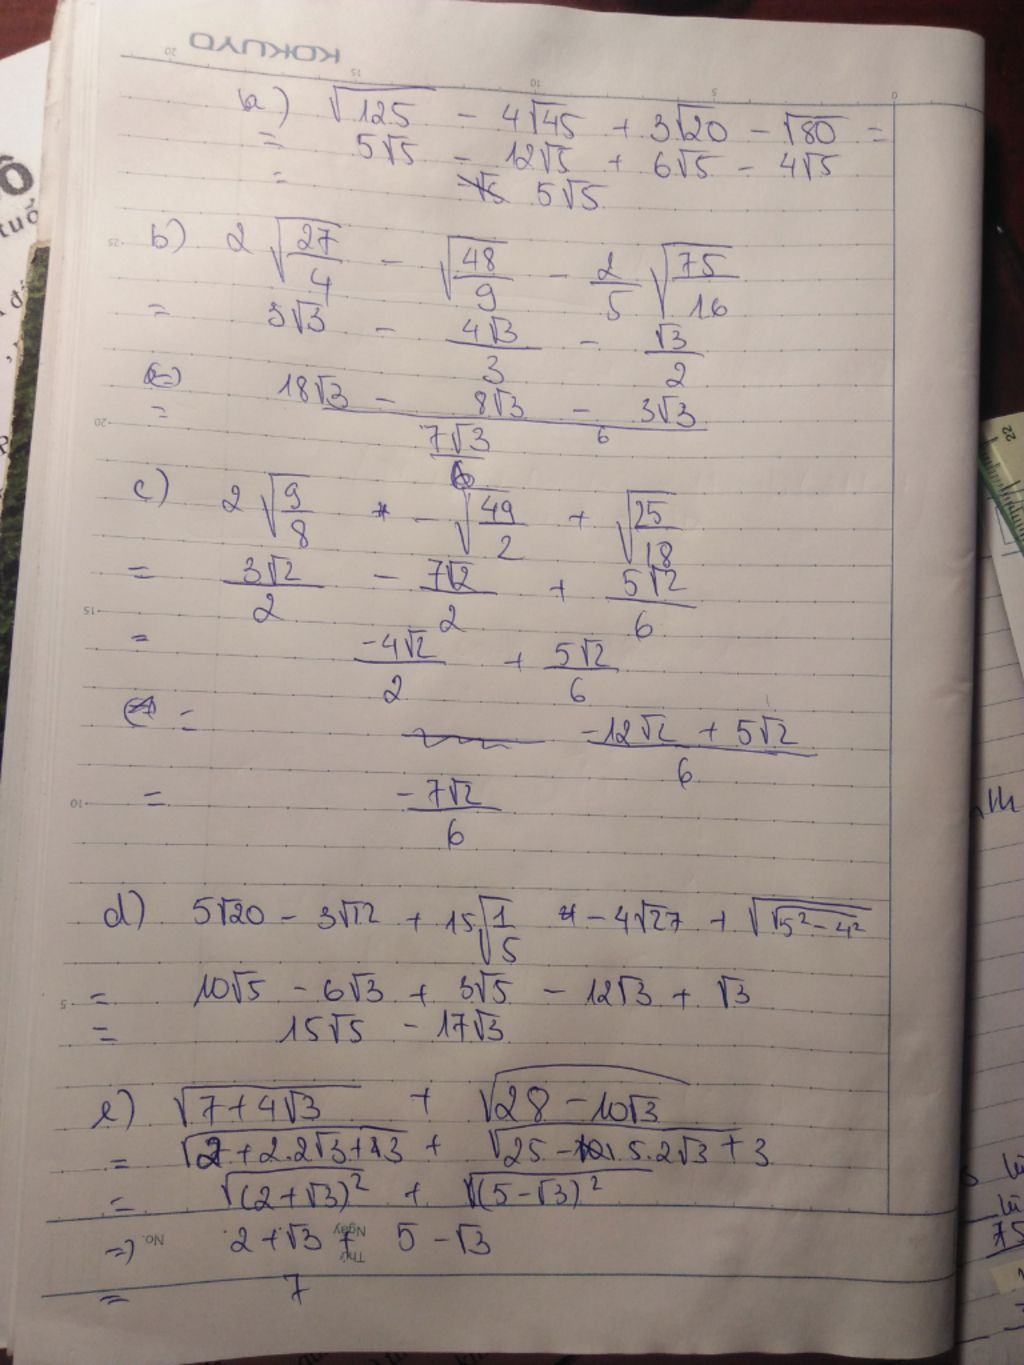 KOKUYO
a) √125 - 4√45 + 3√20 - √80 =
= 5√5 - 12√5 + 6√5 - 4√5
= 5√5
b) 2√(27/4) - √(48/9) - 2/5 √(75/16)
= 3√3 - 4√3/3 - √3/2
= (18√3 - 8√3 - 3√3)/6
7√3/6
c) 2√(9/8) - √(49/2) + √(25/18)
= 3√2/2 - 7√2/2 + 5√2/6
= -4√2/2 + 5√2/6
= (-12√2 + 5√2)/6
= -7√2/6
d) 5√20 - 3√12 + 15√(1/5) - 4√27 + √(√(5² - 4²))
= 10√5 - 6√3 + 3√5 - 12√3 + √3
= 15√5 - 17√3
e) √(7 + 4√3) + √(28 - 10√3)
= √((2 + √3)²) + √((5 - √3)²)
=> 2 + √3 + 5 - √3
= 7